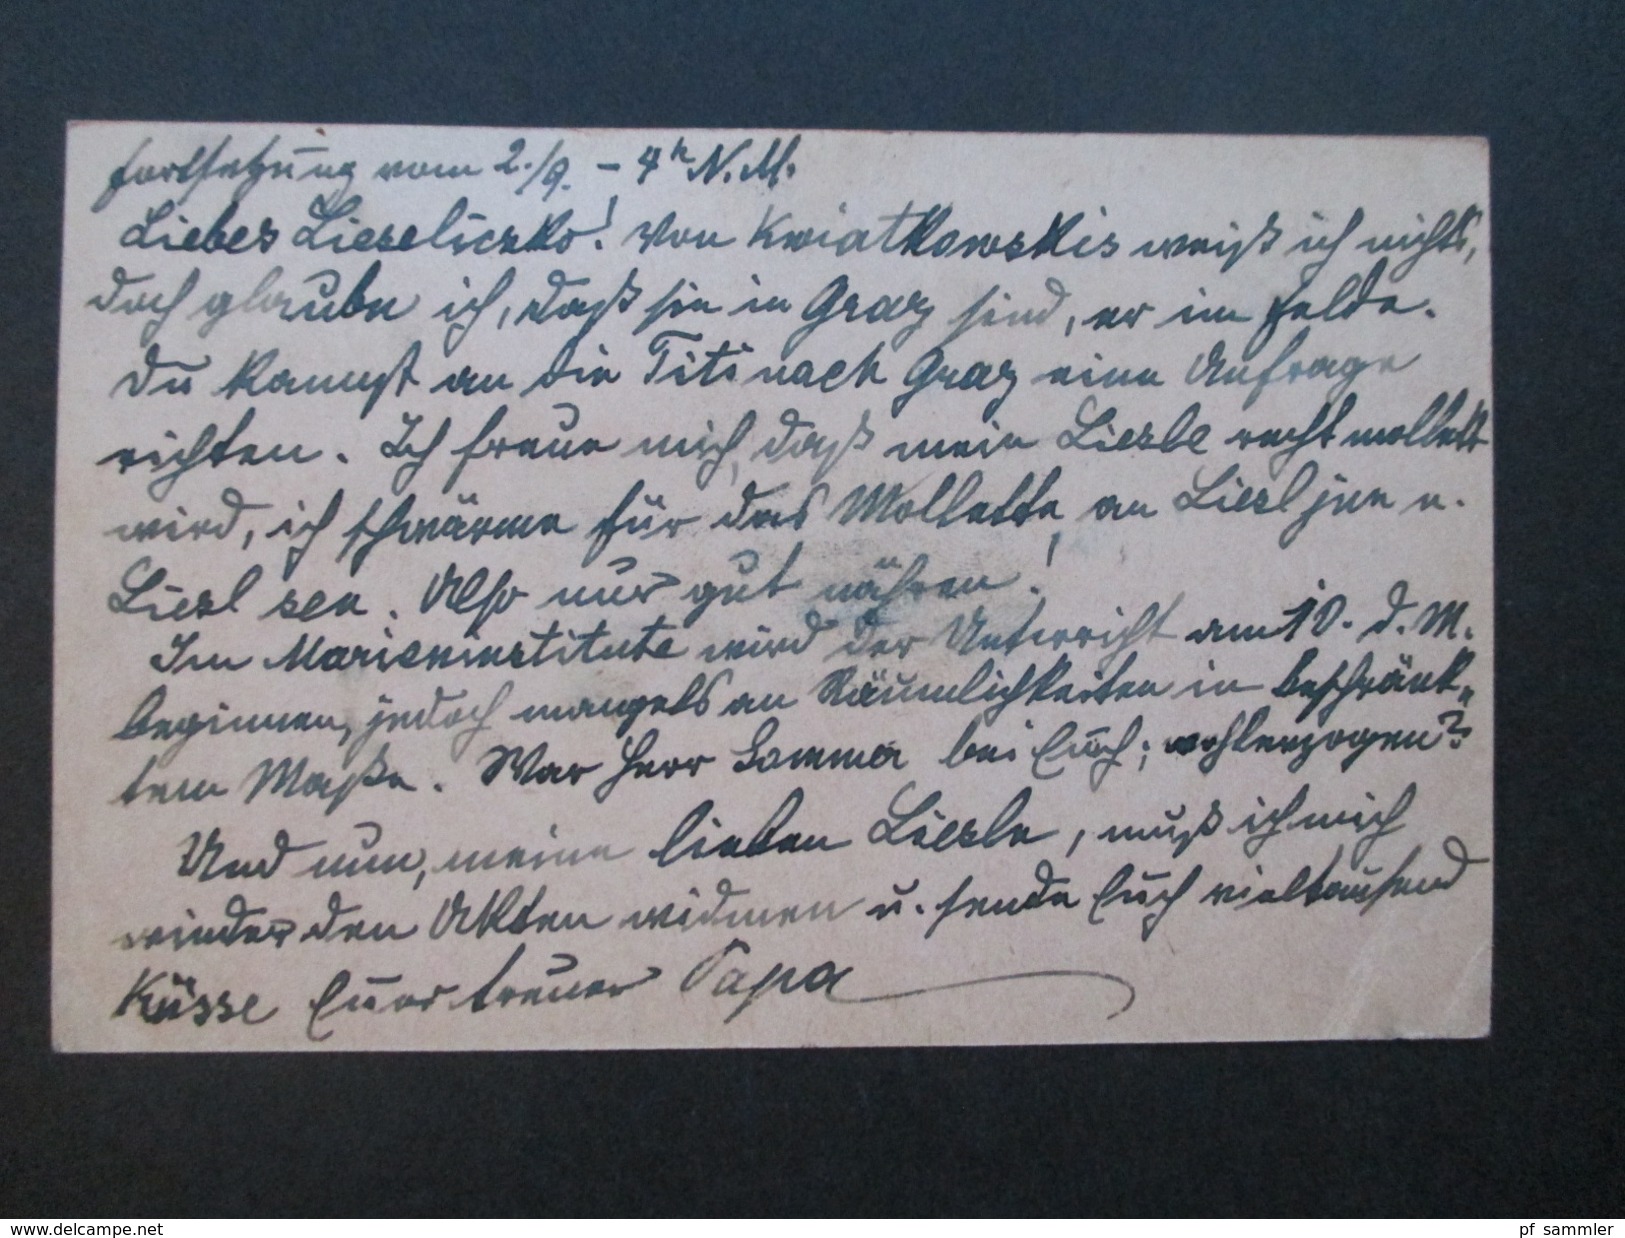 Fortsetzung vom 2./9. – 4h N.M.
Liebes Lieseliczko! Von Kwiatkowskis weiß ich nichts,
doch glaube ich, daß sie in Graz sind, er im Felde.
Du kannst an die Titi nach Graz eine Anfrage
richten. Ich freue mich, daß mein Liesle recht mollett
wird, ich schwärme für das Mollette an Liesl jun u.
Liesl sen. Also nur gut nähren!
Im Marieninstitute wird der Unterricht am 10. d. M.
beginnen, jedoch mangels an Räumlichkeiten in beschränk-
tem Maße. War Herr Somma bei Euch; wohlerzogen?
Und nun, meine lieben Liesln, muß ich mich
wieder den Akten widmen u. sende Euch vieltausend
Küsse Euer treuer Papa
www.delcampe.net
pf sammler